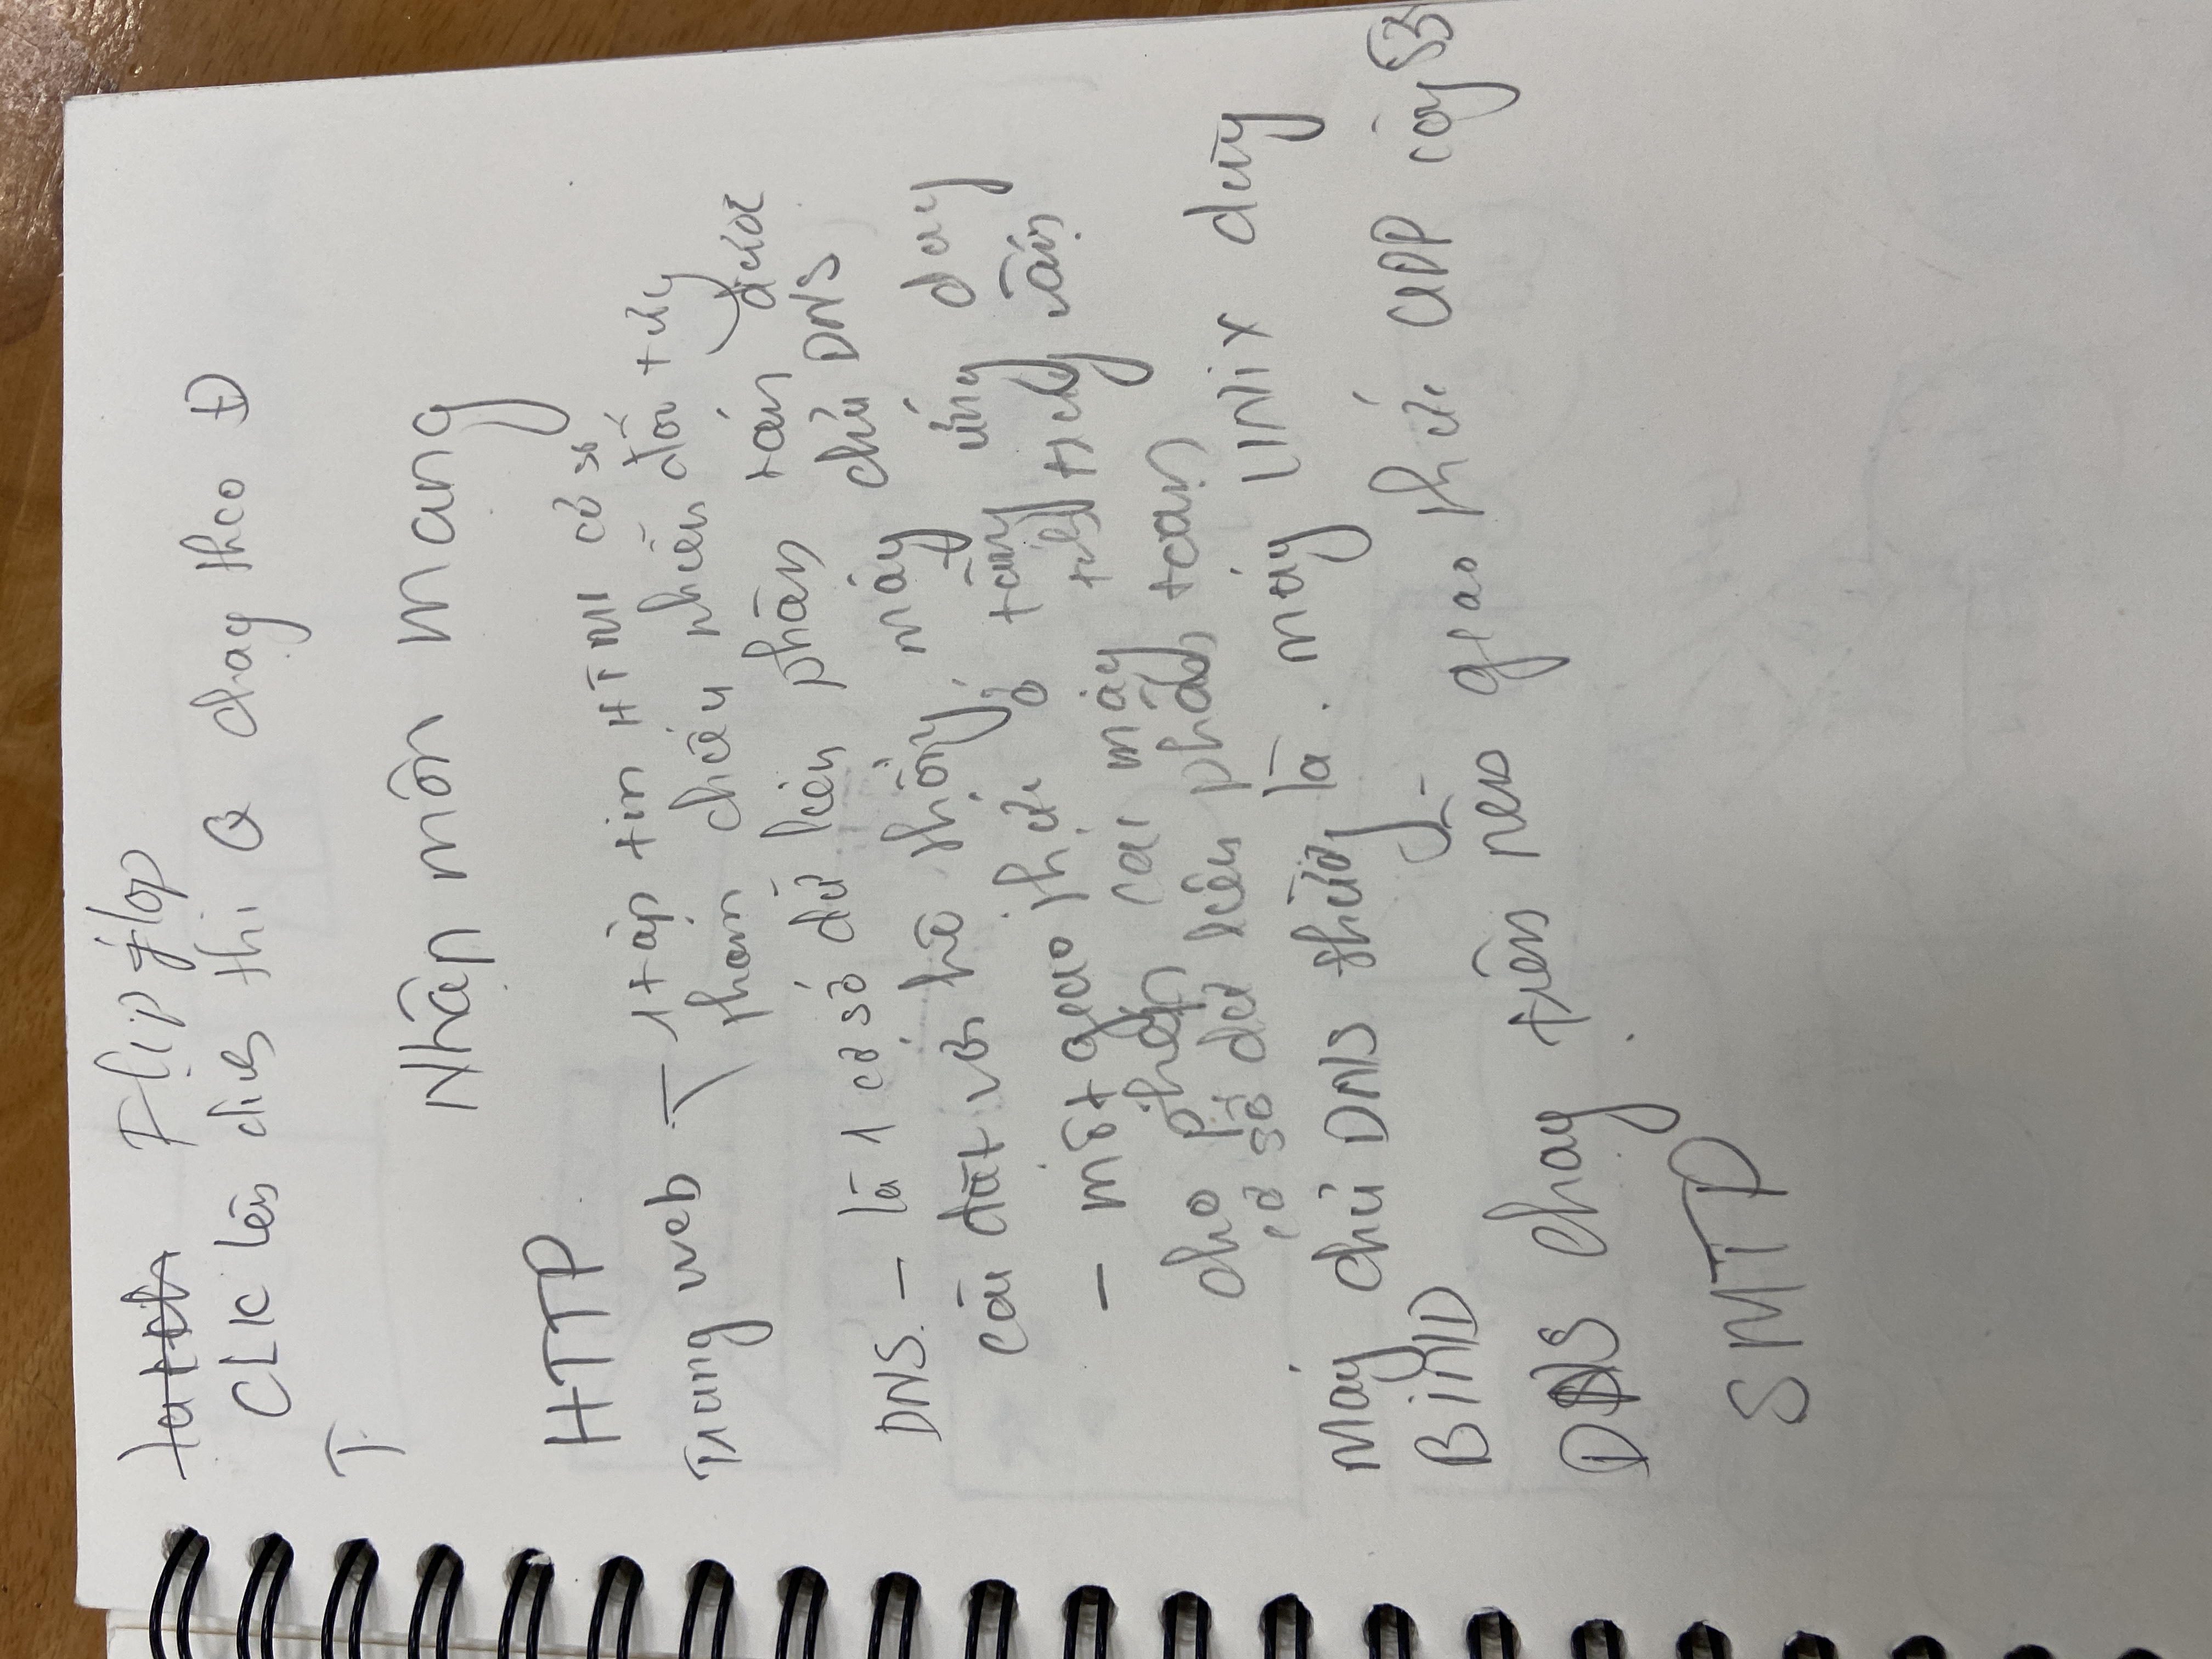 latch Flip flop
CLK lên đỉnh thì Q chạy theo D
T
Nhập môn mạng
HTTP
Trang web - 1 tập tin HTML cơ sở
tham chiếu nhiều đối tượng
DNS. - là 1 cơ sở dữ liệu phân tán được
cài đặt với hệ thống máy chủ DNS
- một giao thức ở tầng ứng dụng
cho phép các máy tính truy vấn
cơ sở dữ liệu phân
Máy chủ DNS thường là máy UNix dùng
BiND
DNS chạy trên nền giao thức UDP cổng 53
SMTP